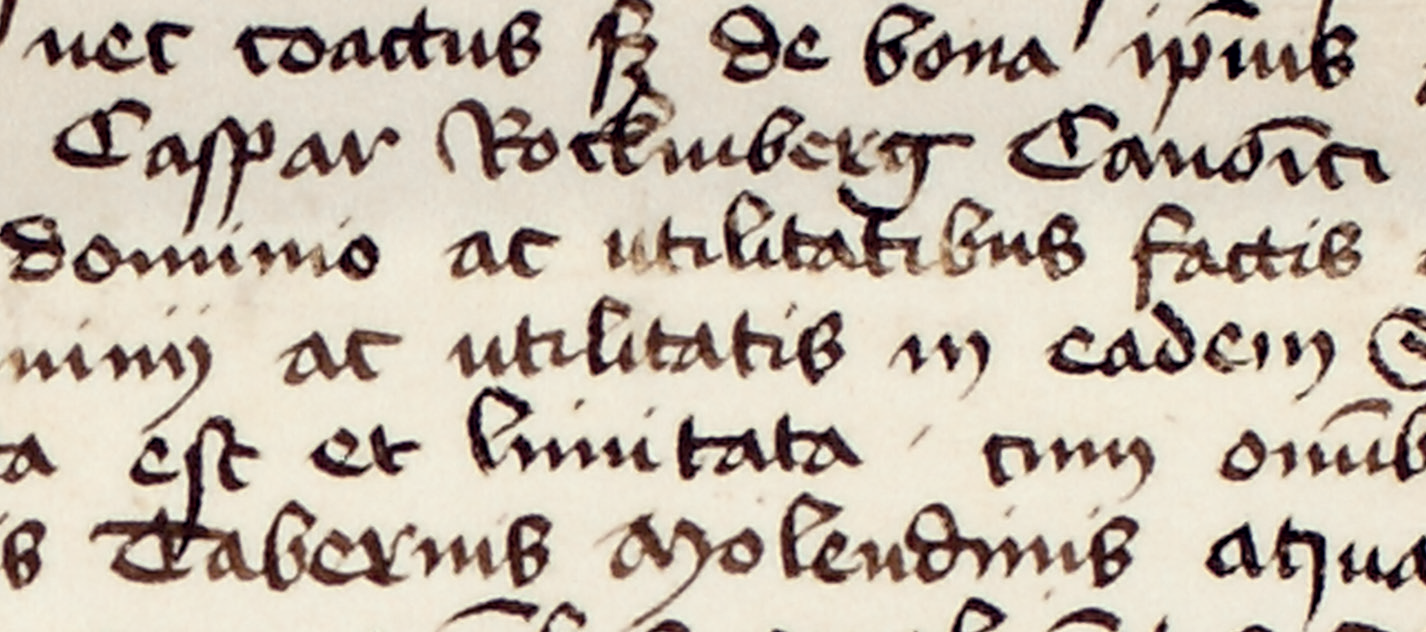 nec coactus sꝫ de bona ip̄ius
Caspar Rockinberg Canoīci
dominio ac utilitatibus factis
minij ac utilitatis in eadem
ta est et limitata cum omib
is Tabernis Molendinis aqua